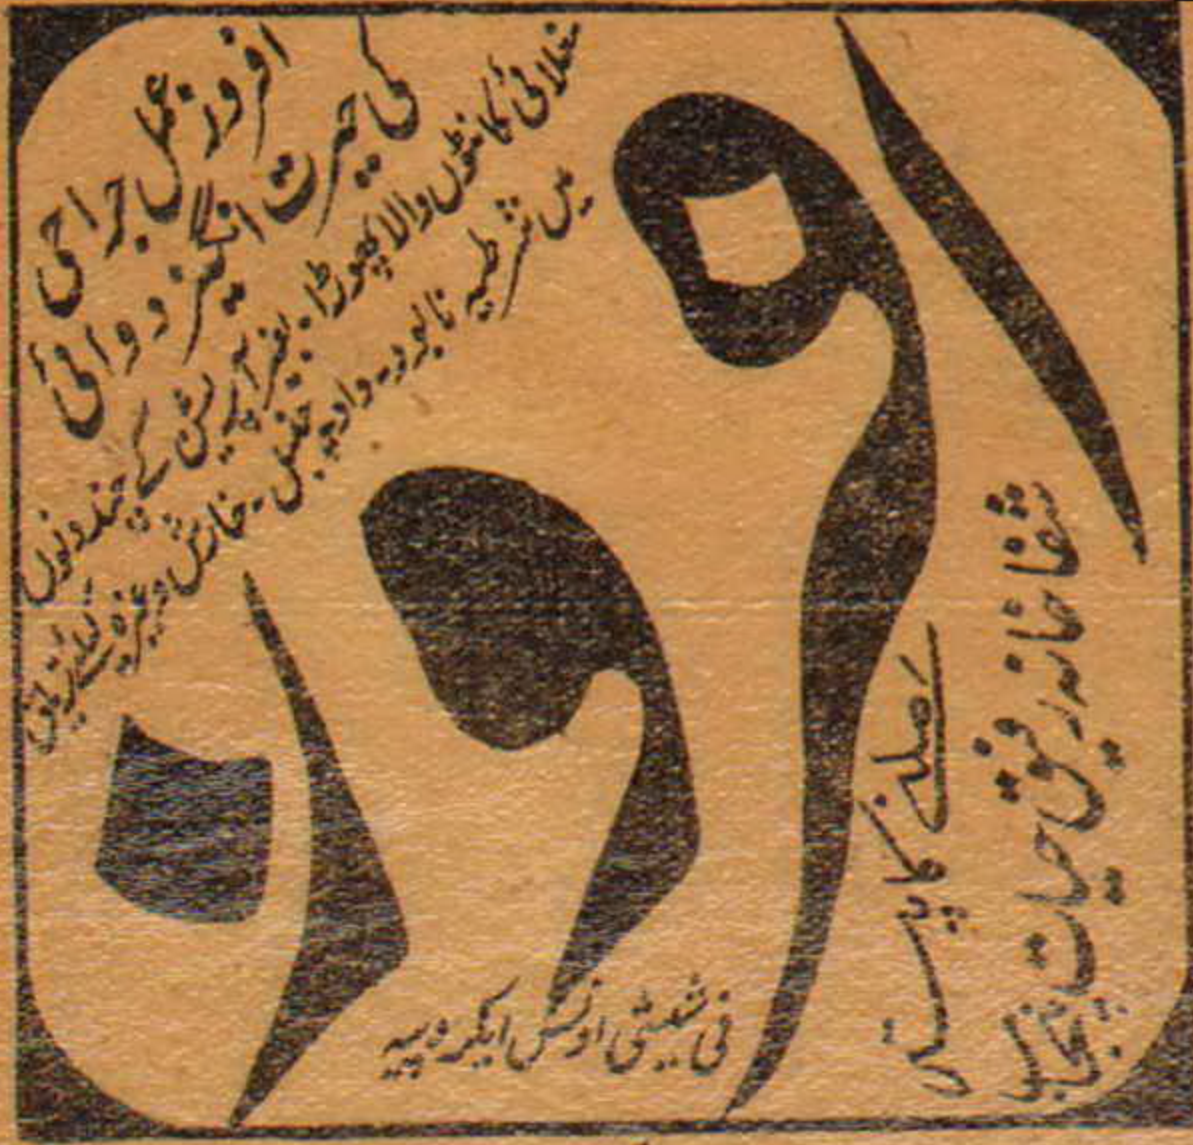 افروز عمل جراحی
کی حیرت انگیز دوائی
مغلائی کانٹوں والا پھوڑا۔ بغیر آپریشن کے چند دنوں
میں شرطیہ نابود۔ داد۔ چنبل۔ خارش وغیرہ کیلئے تریاق
افروز
فی شیشی اونس ایک روپیہ
ملنے کا پتہ
شفاخانہ رفیق حیات